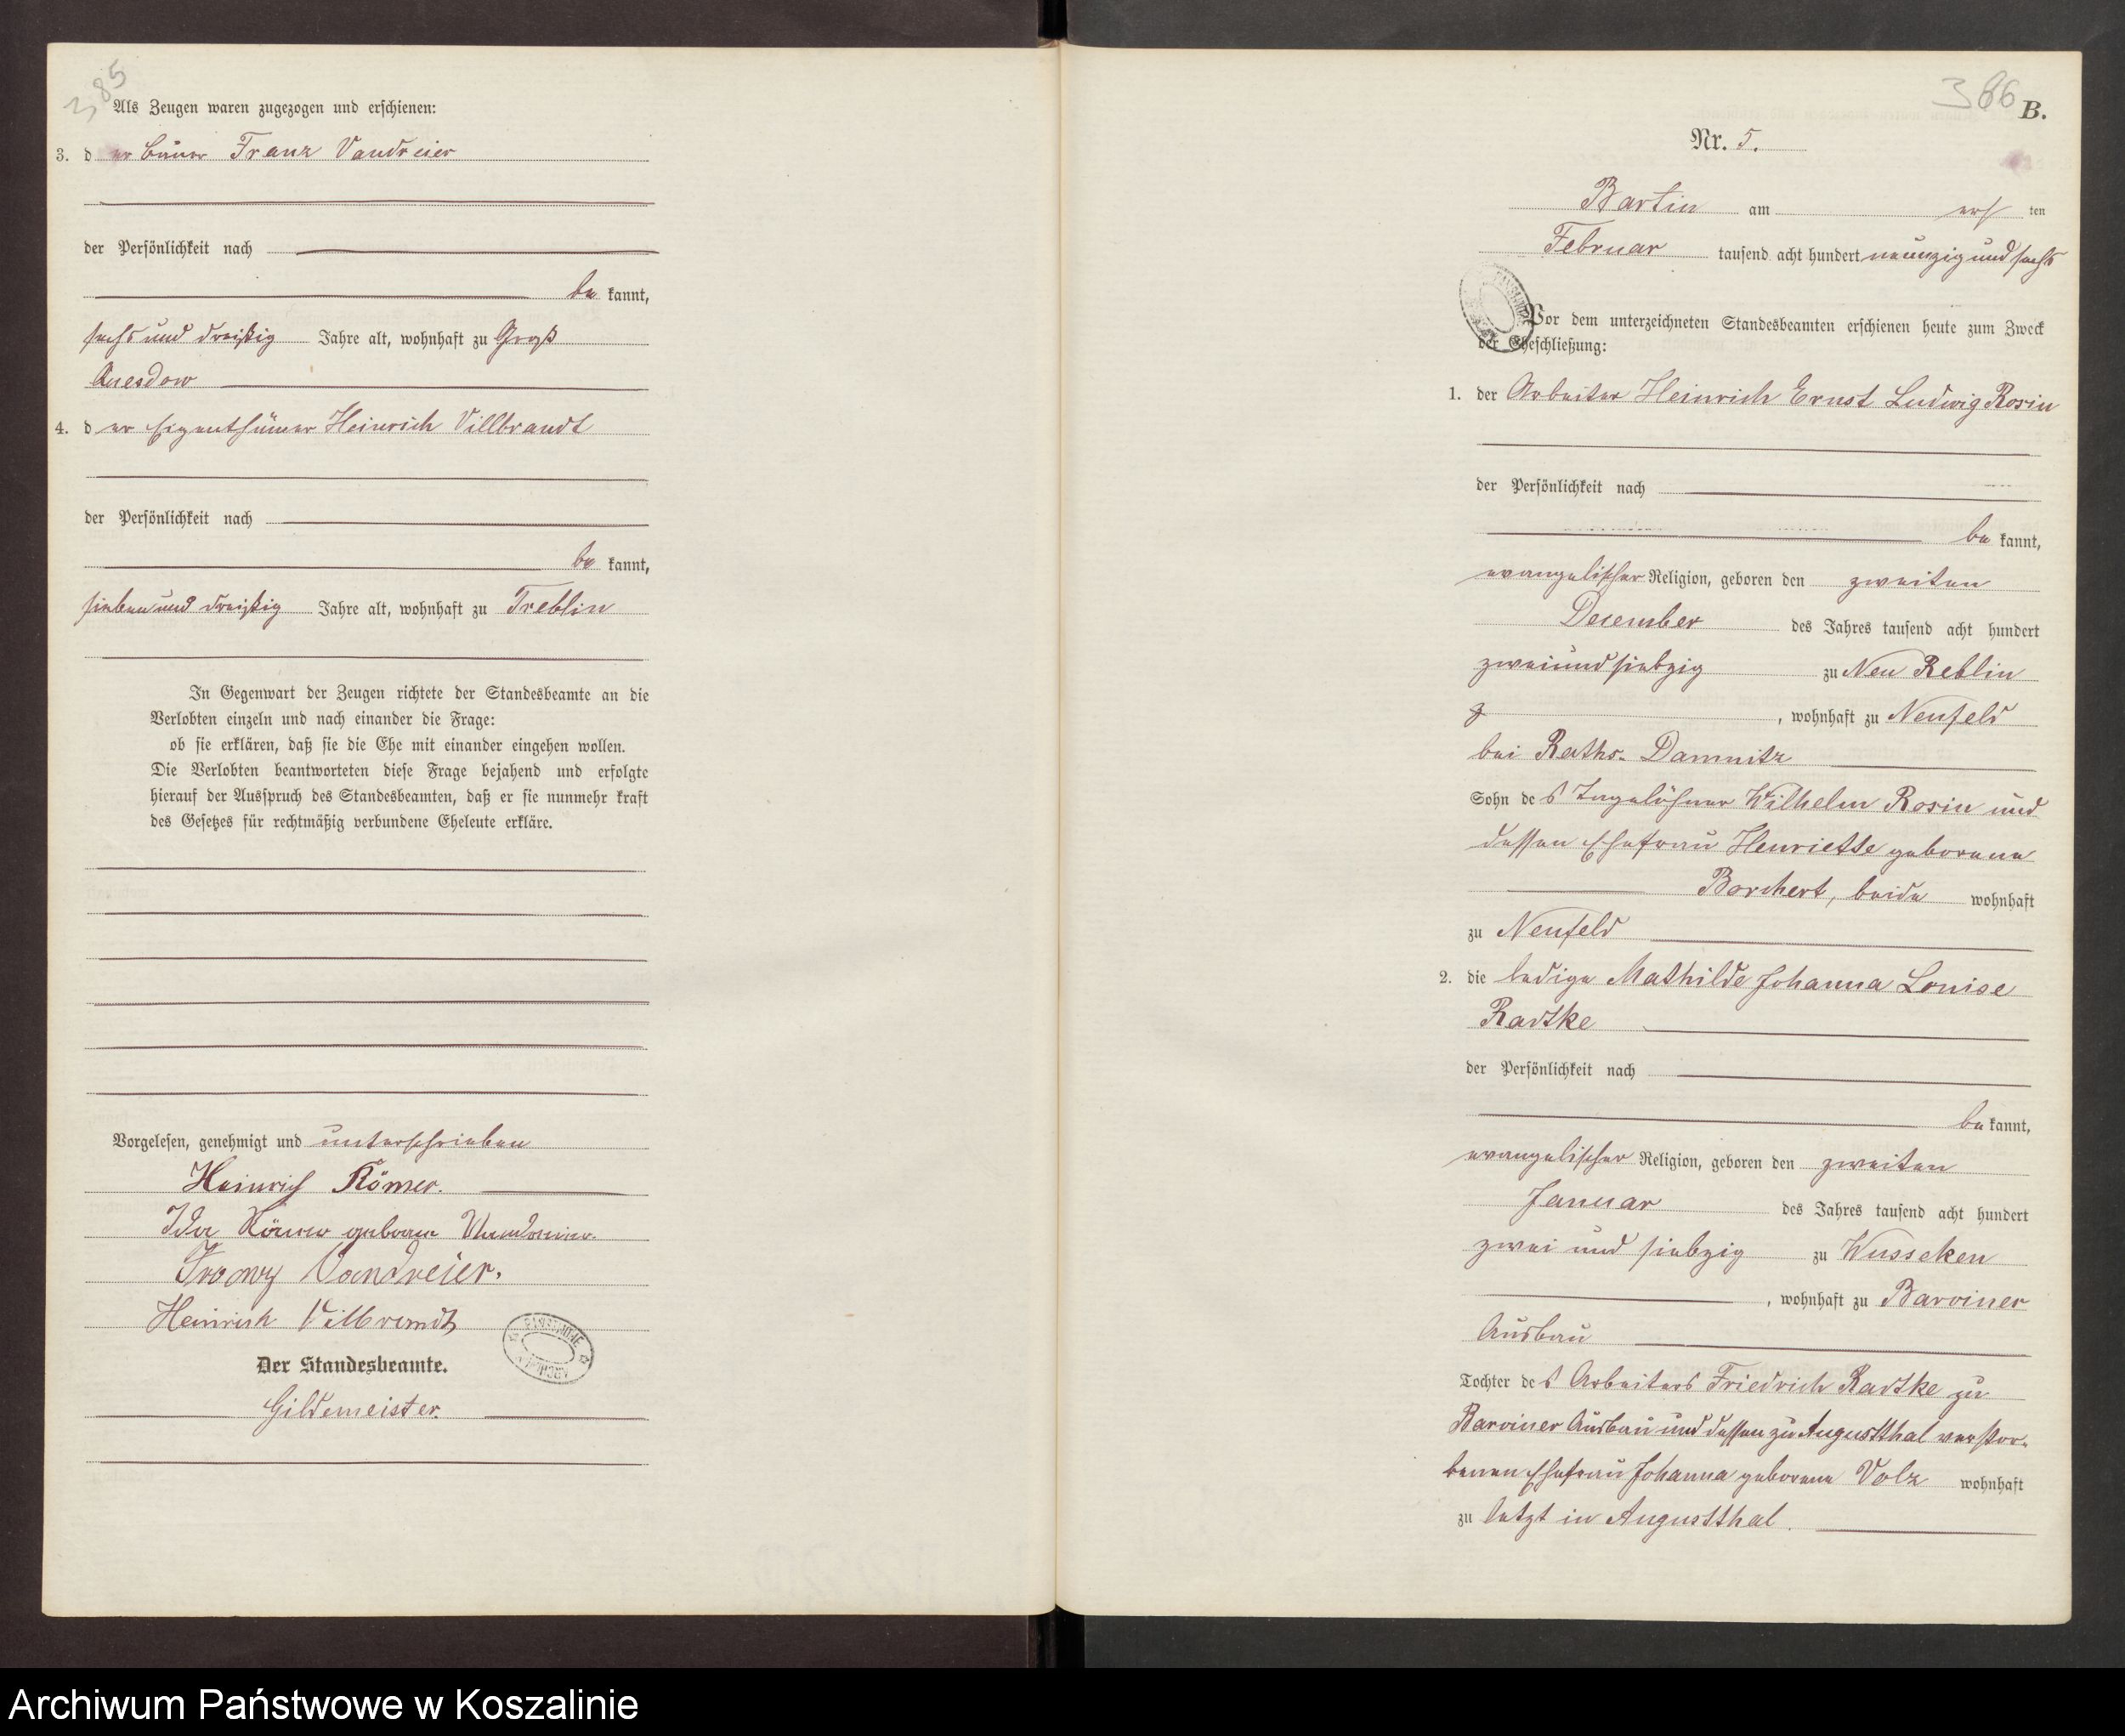 385
Als Zeugen waren zugezogen und erschienen:
3. der Bauer Franz Vandreier
der Persönlichkeit nach
bekannt,
sechs und dreißig Jahre alt, wohnhaft zu Groß
Quesdow
4. der Eigenthümer Heinrich Villbrandt
der Persönlichkeit nach
bekannt,
sieben und dreißig Jahre alt, wohnhaft zu Treblin
In Gegenwart der Zeugen richtete der Standesbeamte an die
Verlobten einzeln und nach einander die Frage:
ob sie erklären, daß sie die Ehe mit einander eingehen wollen.
Die Verlobten beantworteten diese Frage bejahend und erfolgte
hierauf der Ausspruch des Standesbeamten, daß er sie nunmehr kraft
des Gesetzes für rechtmäßig verbundene Eheleute erkläre.
Vorgelesen, genehmigt und unterschrieben
Heinrich Römer.
Ida Römer geborene Vandreier.
Franz Vandreier.
Heinrich Vilbrandt
Der Standesbeamte.
Gildemeister.
386
B.
Nr. 5.
Bartin am ersten
Februar tausend acht hundert neunzig und sechs
Vor dem unterzeichneten Standesbeamten erschienen heute zum Zweck
der Eheschließung:
1. der Arbeiter Heinrich Ernst Ludwig Rosin
der Persönlichkeit nach
bekannt,
evangelischer Religion, geboren den zweiten
Dezember des Jahres tausend acht hundert
zweiundsiebzig zu Neu Reblin
, wohnhaft zu Neufeld
bei Raths-Damnitz
Sohn des Tagelöhner Wilhelm Rosin und
dessen Ehefrau Henriette geborene
Borchert, beide wohnhaft
zu Neufeld
2. die ledige Mathilde Johanna Louise
Radtke
der Persönlichkeit nach
bekannt,
evangelischer Religion, geboren den zweiten
Januar des Jahres tausend acht hundert
zwei und siebzig zu Wusseken
, wohnhaft zu Barviner
Ausbau
Tochter des Arbeiters Friedrich Radtke zu
Barviner Ausbau und dessen zu Augustthal verstor-
benen Ehefrau Johanna geborene Volz wohnhaft
zu letzt in Augustthal.
Archiwum Państwowe w Koszalinie